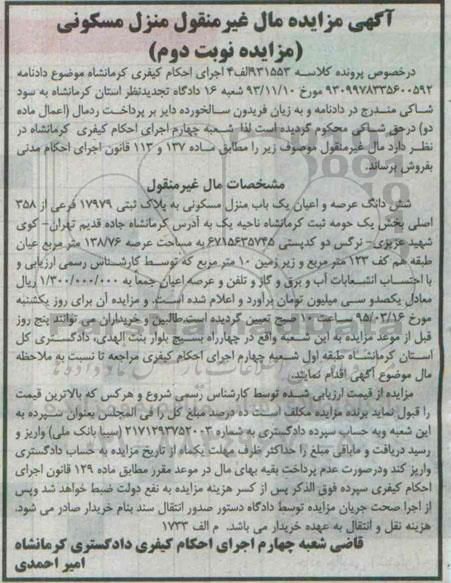 آگهی مزایده مال غیرمنقول منزل مسکونی
(مزایده نوبت دوم)
درخصوص پرونده کلاسه ۹۳۱۵۵۳الف۴ اجرای احکام کیفری کرمانشاه موضوع دادنامه
۹۳۰۹۹۷۸۳۳۵۶۰۰۵۹۲ مورخ ۹۳/۱۱/۱۰ شعبه ۱۶ دادگاه تجدیدنظر استان کرمانشاه به سود
شاکی مندرج در دادنامه و به زیان فریدون سالخورده دایر بر پرداخت ردمال (اعمال ماده
دو) درحق شاکی محکوم گردیده است لذا شعبه چهارم اجرای احکام کیفری کرمانشاه در
نظر دارد مال غیرمنقول موصوف زیر را مطابق ماده ۱۳۷ و ۱۱۳ قانون اجرای احکام مدنی
بفروش برساند.
مشخصات مال غیرمنقول
شش دانگ عرصه و اعیان یک باب منزل مسکونی به پلاک ثبتی ۱۷۹۷۹ فرعی از ۳۵۸
اصلی بخش یک حومه ثبت کرمانشاه ناحیه یک به آدرس کرمانشاه جاده قدیم تهران- کوی
شهید عزیزی- نرگس دو کدپستی ۶۷۱۵۶۳۵۷۴۵ به مساحت عرصه ۱۳۸/۷۶ متر مربع عیان
طبقه هم کف ۱۲۳ متر مربع و زیر زمین ۱۰ متر مربع که توسط کارشناس رسمی ارزیابی و
با احتساب انشعابات آب و برق و گاز و تلفن و عرصه اعیان جمعاً به ۱/۳۰۰/۰۰۰/۰۰۰ ریال
معادل یکصدو سی میلیون تومان برآورد و اعلام شده است. و مزایده آن برای روز یکشنبه
مورخ ۹۵/۰۳/۱۶ ساعت ۱۰ صبح تعیین گردیده است.طالبین و خریداران می توانند پنج روز
قبل از موعد مزایده به این شعبه واقع در چهارراه بسیج بلوار بنت الهدی، دادگستری کل
استان کرمانشاه طبقه اول شعبه چهارم اجرای احکام کیفری مراجعه تا نسبت به ملاحظه
مال موضوع آگهی اقدام نمایند.
مزایده از قیمت ارزیابی شده توسط کارشناس رسمی شروع و هرکس که بالاترین قیمت
را قبول نماید برنده مزایده مکلف است ده درصد مبلغ کل را فی المجلس بعنوان سپرده به
این شعبه وبه حساب سپرده دادگستری به شماره ۲۱۷۱۲۹۳۷۵۲۰۰۳ (سیبا بانک ملی) واریز و
رسید دریافت و مابقی مبلغ را حداکثر ظرف مهلت یکماه از تاریخ مزایده به حساب دادگستری
واریز کند ودرصورت عدم پرداخت بقیه بهای مال در موعد مقرر مطابق ماده ۱۲۹ قانون اجرای
احکام کیفری سپرده فوق الذکر پس از کسر هزینه مزایده به نفع دولت ضبط خواهد شد وپس
از اجرا صحت جریان مزایده توسط دادگاه دستور صدور انتقال سند بنام خریدار صادر می شود.
هزینه نقل و انتقال به عهده خریدار می باشد. م الف ۱۷۳۳
قاضی شعبه چهارم اجرای احکام کیفری دادگستری کرمانشاه
امیر احمدی